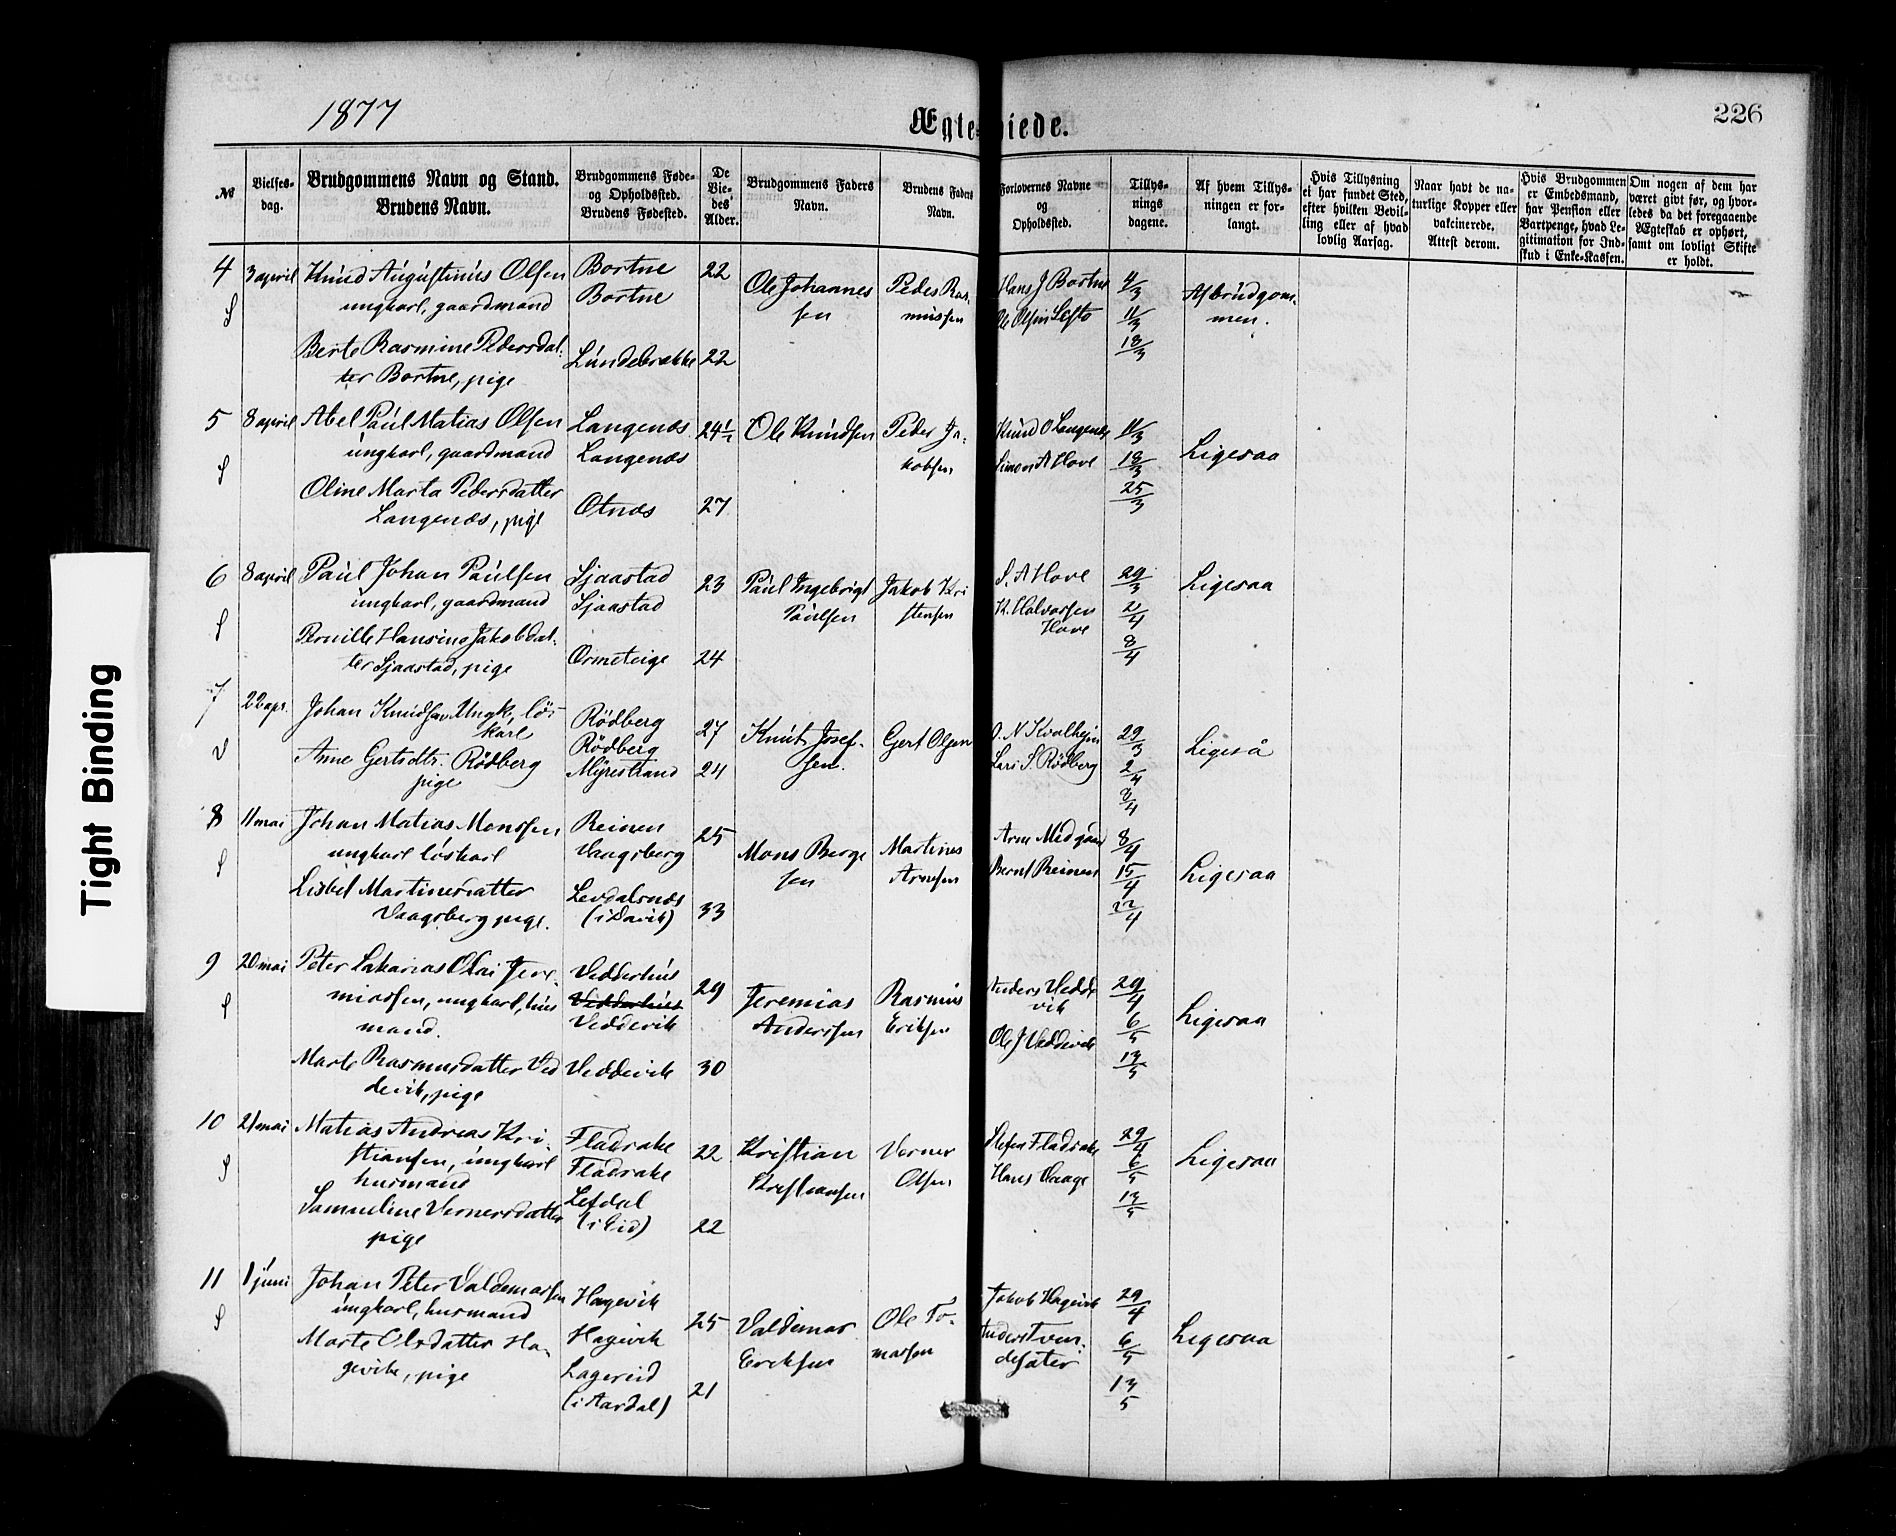 1877
Ægteviede.
226
Tight Binding
№
Vielses-
dag.
Brudgommens Navn og Stand.
Brudens Navn.
Brudgommens Føde-
og Opholdssted.
Brudens Fødested.
De
Vie-
des
Alder.
Brudgommens Faders
Navn.
Brudens Faders
Navn.
Forlovernes Navne
og
Opholdssted.
Tillys-
nings
dagene.
Af hvem Tillys-
ningen er for-
langt.
Hvis Tillysning
ei har fundet Sted,
efter hvilken Bevil-
ling eller af hvad
lovlig Aarsag.
Naar havt de na-
turlige Kopper eller
vakcinerede.
Attest derom.
Hvis Brudgommen
er Embedsmand,
har Pension eller
Vartpenge, hvad Le-
gitimation for Ind-
skud i Enke-Kassen.
Om nogen af dem har
været givt før, og hvor-
ledes da det foregaaende
Ægteskab er ophørt,
samt om lovligt Skifte
er holdt.
4
S
3 april
Knud Augustinus Olsen
ungkarl, gaardmand
Berte Rasmine Pedersdat-
ter Bortne, pige
Bortne
Bortne
Lundebrække
22
22
Ole Johannes
sen
Peder Ras-
mussen
Hans J Bortne
4/3
11/3
18/3
Af brudgom-
men.
5
S
8 april
Abel Paul Matias Olsen
ungkarl, gaardmand
Oline Marta Pedersdatter
Langenæs, pige
Langenæs
Langenæs
Otnæs
24½
27
Ole Knudsen
Peder Ja-
kobsen
Knud O Langenæs
Simon A Hove
11/3
18/3
25/3
Ligesaa
6
S
8 april
Paul Johan Paulsen
ungkarl, gaardmand
Pernille Hansine Jakobdat-
ter Sjaastad, pige
Sjaastad
Sjaastad
Ormeteige
23
24
Paul Ingebrigt
Paulsen
Jakob Kri
stensen
S. A Hove
K. Halvorsen
Hove
29/3
2/4
8/4
Ligesaa
7
V
22 apr.
Johan Knudsen Ungk, løs
karl
Anne Gertsdtr. Rødberg
pige
Rødberg
Rødberg
Myrestrand
27
24
Knut Josef-
sen.
Gert Olsen
O. N Kvalheim
Lars S. Rødberg
29/3
2/4
8/4
Ligeså
8
S
11 mai
Johan Matias Monssen
ungkarl løskarl
Lisbet Martinesdatter
Vaagsberg pige.
Reinen
Vaagsberg
Levdalsnæs
(i Davik)
25
33
Mons Berge
sen
Martines
Arnesen
Arne Midgaard
Bernt Reinen
8/4
15/4
22/4
Ligesaa
9
S
20 mai
Peter Sakarias Olai Jere-
miassen, ungkarl, hus
mand.
Marte Rasmusdatter Ved
devik, pige
Vedderhus
Vedderhus
Veddevik
Veddevik
29
30
Jeremias
Anderssen
Rasmus
Eriksen
Anders Vedde
vik
Ole J Veddevik
29/4
6/5
13/5
Ligesaa
10
S
21 mai
Matias Andreas Kri-
stiansen, ungkarl
husmand
Samueline Vernersdatter
pige
Fladrake
Fladrake
Lefdal
(i Eid)
22
22
Kristian
Kristiansen
Verner
Olsen
Stefen Fladrake
Hans Vaage
29/4
6/5
13/5
Ligesaa
11
S
1 juni
Johan Peter Valdemarsen
ungkarl, husmand
Marte Olsdatter Ha-
gevik, pige
Hagevik
Hagevik
Lagereid
(i Aardal)
25
21
Valdemar
Eriksen
Ole To-
massen
Jakob Hagevik
Anders Tven-
desæter
29/4
6/5
13/5
Ligesaa